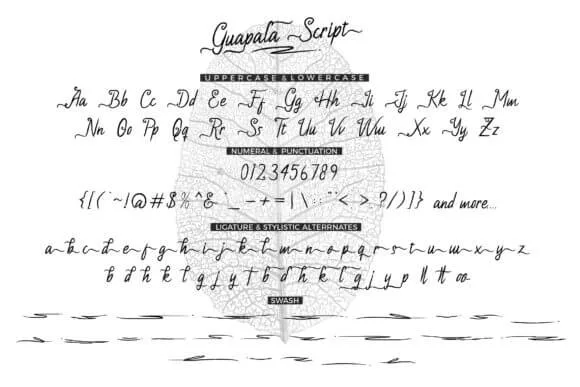 Guapala Script
UPPERCASE & LOWERCASE
Aa Bb Cc Dd Ee Ff Gg Hh Ii Jj Kk Ll Mm
Nn Oo Pp Qq Rr Ss Tt Uu Vv Ww Xx Yy Zz
NUMERAL & PUNCTUATION
0123456789
{[(`~/|@#$%^& *_-+=|\::"<,>?/)]} and more...
LIGATURE & STYLISTIC ALTERRNATES
a b c d e f g h i j k l m n o p q r s t u w x y z
b d h k l g j y f b d h k l g j y p ll tt oo
SWASH